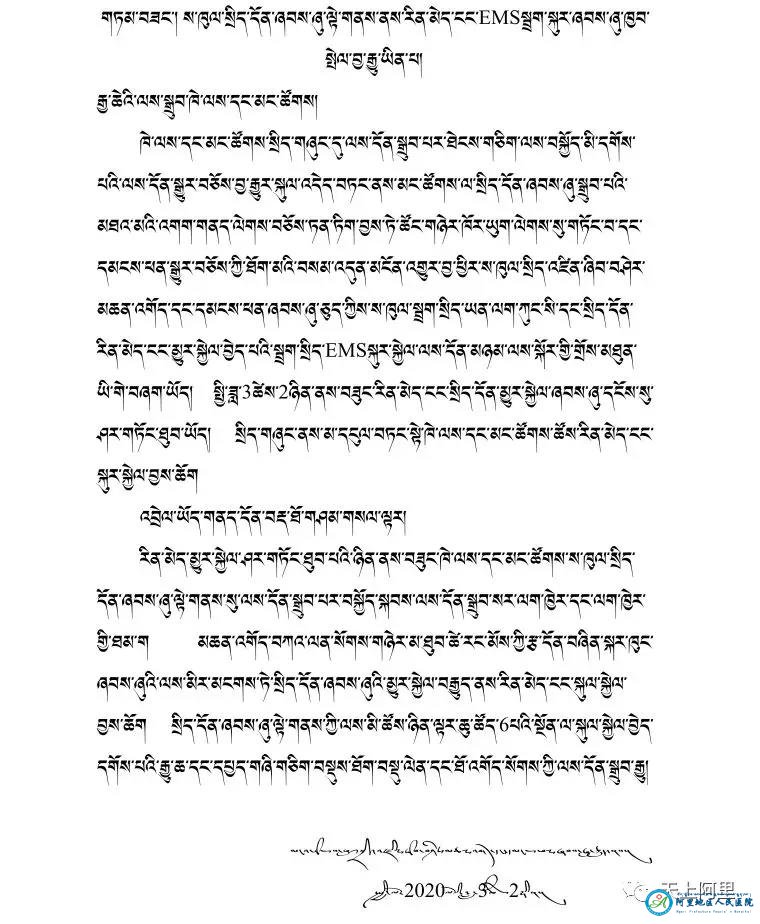 གཏམ་བཟང་། ས་ཁུལ་སྲིད་དོན་ཞབས་ཞུ་ལྟེ་གནས་ནས་རིན་མེད་ངང་EMSསྦྲག་སྐུར་ཞབས་ཞུ་ཁྱབ་
སྤེལ་བྱ་རྒྱུ་ཡིན་པ།
རྒྱ་ཆེའི་ལས་སྒྲུབ་ཁེ་ལས་དང་མང་ཚོགས།
ཁེ་ལས་དང་མང་ཚོགས་སྲིད་གཞུང་དུ་ལས་དོན་སྒྲུབ་པར་ཐེངས་གཅིག་ལས་བསྐྱོད་མི་དགོས་
པའི་ལས་དོན་སྒྱུར་བཅོས་བྱ་རྒྱུར་སྐུལ་འདེད་བཏང་ནས་མང་ཚོགས་ལ་སྲིད་དོན་ཞབས་ཞུ་སྒྲུབ་པའི་
མཐའ་མའི་འགག་གནད་ལེགས་བཅོས་ཏན་ཏིག་བྱས་ཏེ་ཚོང་གཉེར་ཁོར་ཡུག་ལེགས་སུ་གཏོང་བ་དང་
དམངས་ཕན་སྒྱུར་བཅོས་ཀྱི་ཐོག་མའི་བསམ་འདུན་མངོན་འགྱུར་བྱ་ཕྱིར་ས་ཁུལ་སྲིད་འཛིན་ཞིབ་བཤེར་
མཆན་འགོད་དང་དམངས་ཕན་ཞབས་ཞུ་ཅུད་ཀྱིས་ས་ཁུལ་སྦྲག་སྲིད་ཡན་ལག་ཀུང་སི་དང་སྲིད་དོན་
རིན་མེད་ངང་མྱུར་སྐྱེལ་བྱེད་པའི་སྦྲག་སྲིད་EMSསྐུར་སྐྱེལ་ལས་དོན་མཉམ་ལས་སྐོར་གྱི་གྲོས་མཐུན་
ཡི་གེ་བཞག་ཡོད། སྤྱི་ཟླ་3ཚེས་2ཉིན་ནས་བཟུང་རིན་མེད་ངང་སྲིད་དོན་མྱུར་སྐྱེལ་ཞབས་ཞུ་དངོས་སུ་
ཤར་གཏོང་ཐུབ་ཡོད། སྲིད་གཞུང་ནས་མ་དངུལ་བཏང་སྟེ་ཁེ་ལས་དང་མང་ཚོགས་ཚོས་རིན་མེད་ངང་
སྐུར་སྐྱེལ་བྱས་ཆོག
འབྲེལ་ཡོད་གནད་དོན་བརྡ་ཐོ་གཤམ་གསལ་ལྟར།
རིན་མེད་མྱུར་སྐྱེལ་ཤར་གཏོང་ཐུབ་པའི་ཉིན་ནས་བཟུང་ཁེ་ལས་དང་མང་ཚོགས་ས་ཁུལ་སྲིད་
དོན་ཞབས་ཞུ་ལྟེ་གནས་སུ་ལས་དོན་སྒྲུབ་པར་བསྐྱོད་སྐབས་ལས་དོན་སྒྲུབ་སར་ལག་ཁྱེར་དང་ལག་ཁྱེར་
གྱི་ཐམ་ག མཆན་འགོད་བཀའ་ལན་སོགས་གཉེར་མ་ཐུབ་ཚེ་རང་མོས་ཀྱི་རྩ་དོན་བཞིན་སྐར་ཁུང་
ཞབས་ཞུའི་ལས་མིར་མངགས་ཏེ་སྲིད་དོན་ཞབས་ཞུའི་མྱུར་སྐྱེལ་བརྒྱུད་ནས་རིན་མེད་ངང་སྐུལ་སྐྱེལ་
བྱས་ཆོག སྲིད་དོན་ཞབས་ཞུ་ལྟེ་གནས་ཀྱི་ལས་མི་ཚོས་ཉིན་ལྟར་ཆུ་ཚོད་6པའི་སྔོན་ལ་སྐུལ་སྐྱེལ་བྱེད་
དགོས་པའི་རྒྱུ་ཆ་དང་དཔྱད་གཞི་གཅིག་བསྡུས་ཐོག་བསྡུ་ལེན་དང་ཐོ་འགོད་སོགས་ཀྱི་ལས་དོན་སྒྲུབ་རྒྱུ།
2020 3 2
天上阿里
阿里地区人民医院